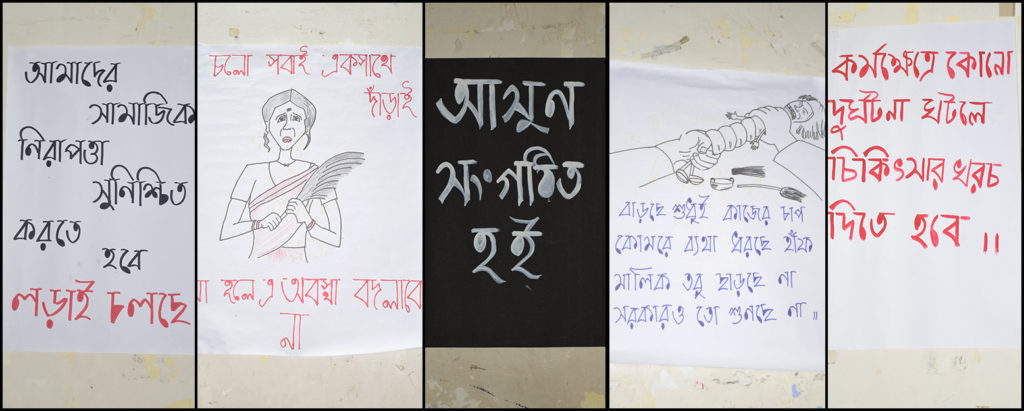 আমাদের
সামাজিক
নিরাপত্তা
সুনিশ্চিত
করতে
হবে
লড়াই চলছে
চলো সবাই একসাথে
দাঁড়াই
না হলে এ অবস্থা বদলাবে
না
আসুন
সংগঠিত
হই
বাড়ছে শুধুই কাজের চাপ
কোমরে ব্যথা ধরছে হাঁফ
মালিক তবু ছাড়ছে না
সরকারও তো শুনছে না ॥
কর্মক্ষেত্রে কোনো
দুর্ঘটনা ঘটলে
চিকিৎসার খরচ
দিতে হবে ॥